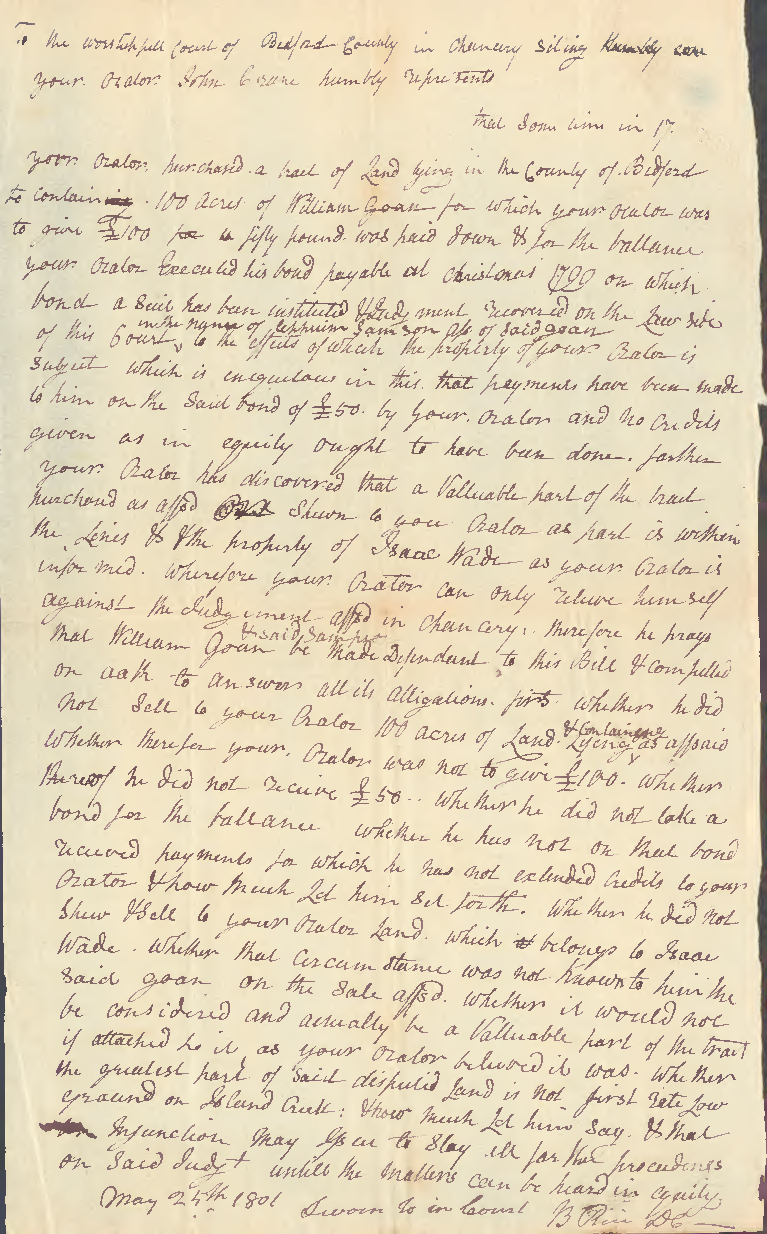 To the worshipfull Court of Bedford County in Chancery Siting Humbly
your Orator John Crane humbly represents
that Som time in 17
your Orator purchased a tract of Land lying in the County of Bedford
to containing 100 Acres of William Goan for which your Orator was
to give £100 fifty pound was paid down & for the ballance
your Orator Executed his bond payable at Christmas 1799 on which
bond a Suit has been instituted & Judgment recovered on the Law side
in the name of Sampson of said goan
of this Court, to the effects of which the property of your Orator is
Subject which is inequitous in this that payments have been made
to him on the Said bond of £50 by your Orator and no Credits
given as in equity ought to have been done. farther
your Orator has discovered that a Valluable part of the tract
purchasd as affsd Shewn to you Orator as part is within
the Lines & the property of Isaac Wade as your Orator is
informed. Wherefore your Orator can only releive himself
against the Judgement affsd in Chancery: therefore he prays
& said Sampson
that William Goan be Made Defendant to this Bill & compelled
on oath to answer all its alligations. first whether he did
not Sell to your Orator 100 acres of Land & Containing Lying as affsaid
Whether therefor your Orator was not to give £100. Whether
thereof he did not receive £50.. Whether he did not take a
bond for the ballance whether he has not on that bond
received payments for which he has not extended Credits to your
Orator & how much Let him Set forth. Whether he did not
Shew & Sell to your Orator Land which belongs to Isaac
Wade. Whether that Circumstance was not known to him the
Said goan on the Sale affsd. Whether it would not
be considered and actually be a Valluable part of the tract
if attached to it, as your Orator beleived it was. Whether
the greatest part of Said disputed Land is not first rate Low
ground on Island Creek: & how much Let him Say. & that
Injunction May Issue to Stay all farther proceedings
on Said Judgt untill the Matters can be heard in equity
May 25th 1801 Sworn to in Court B Rice DC